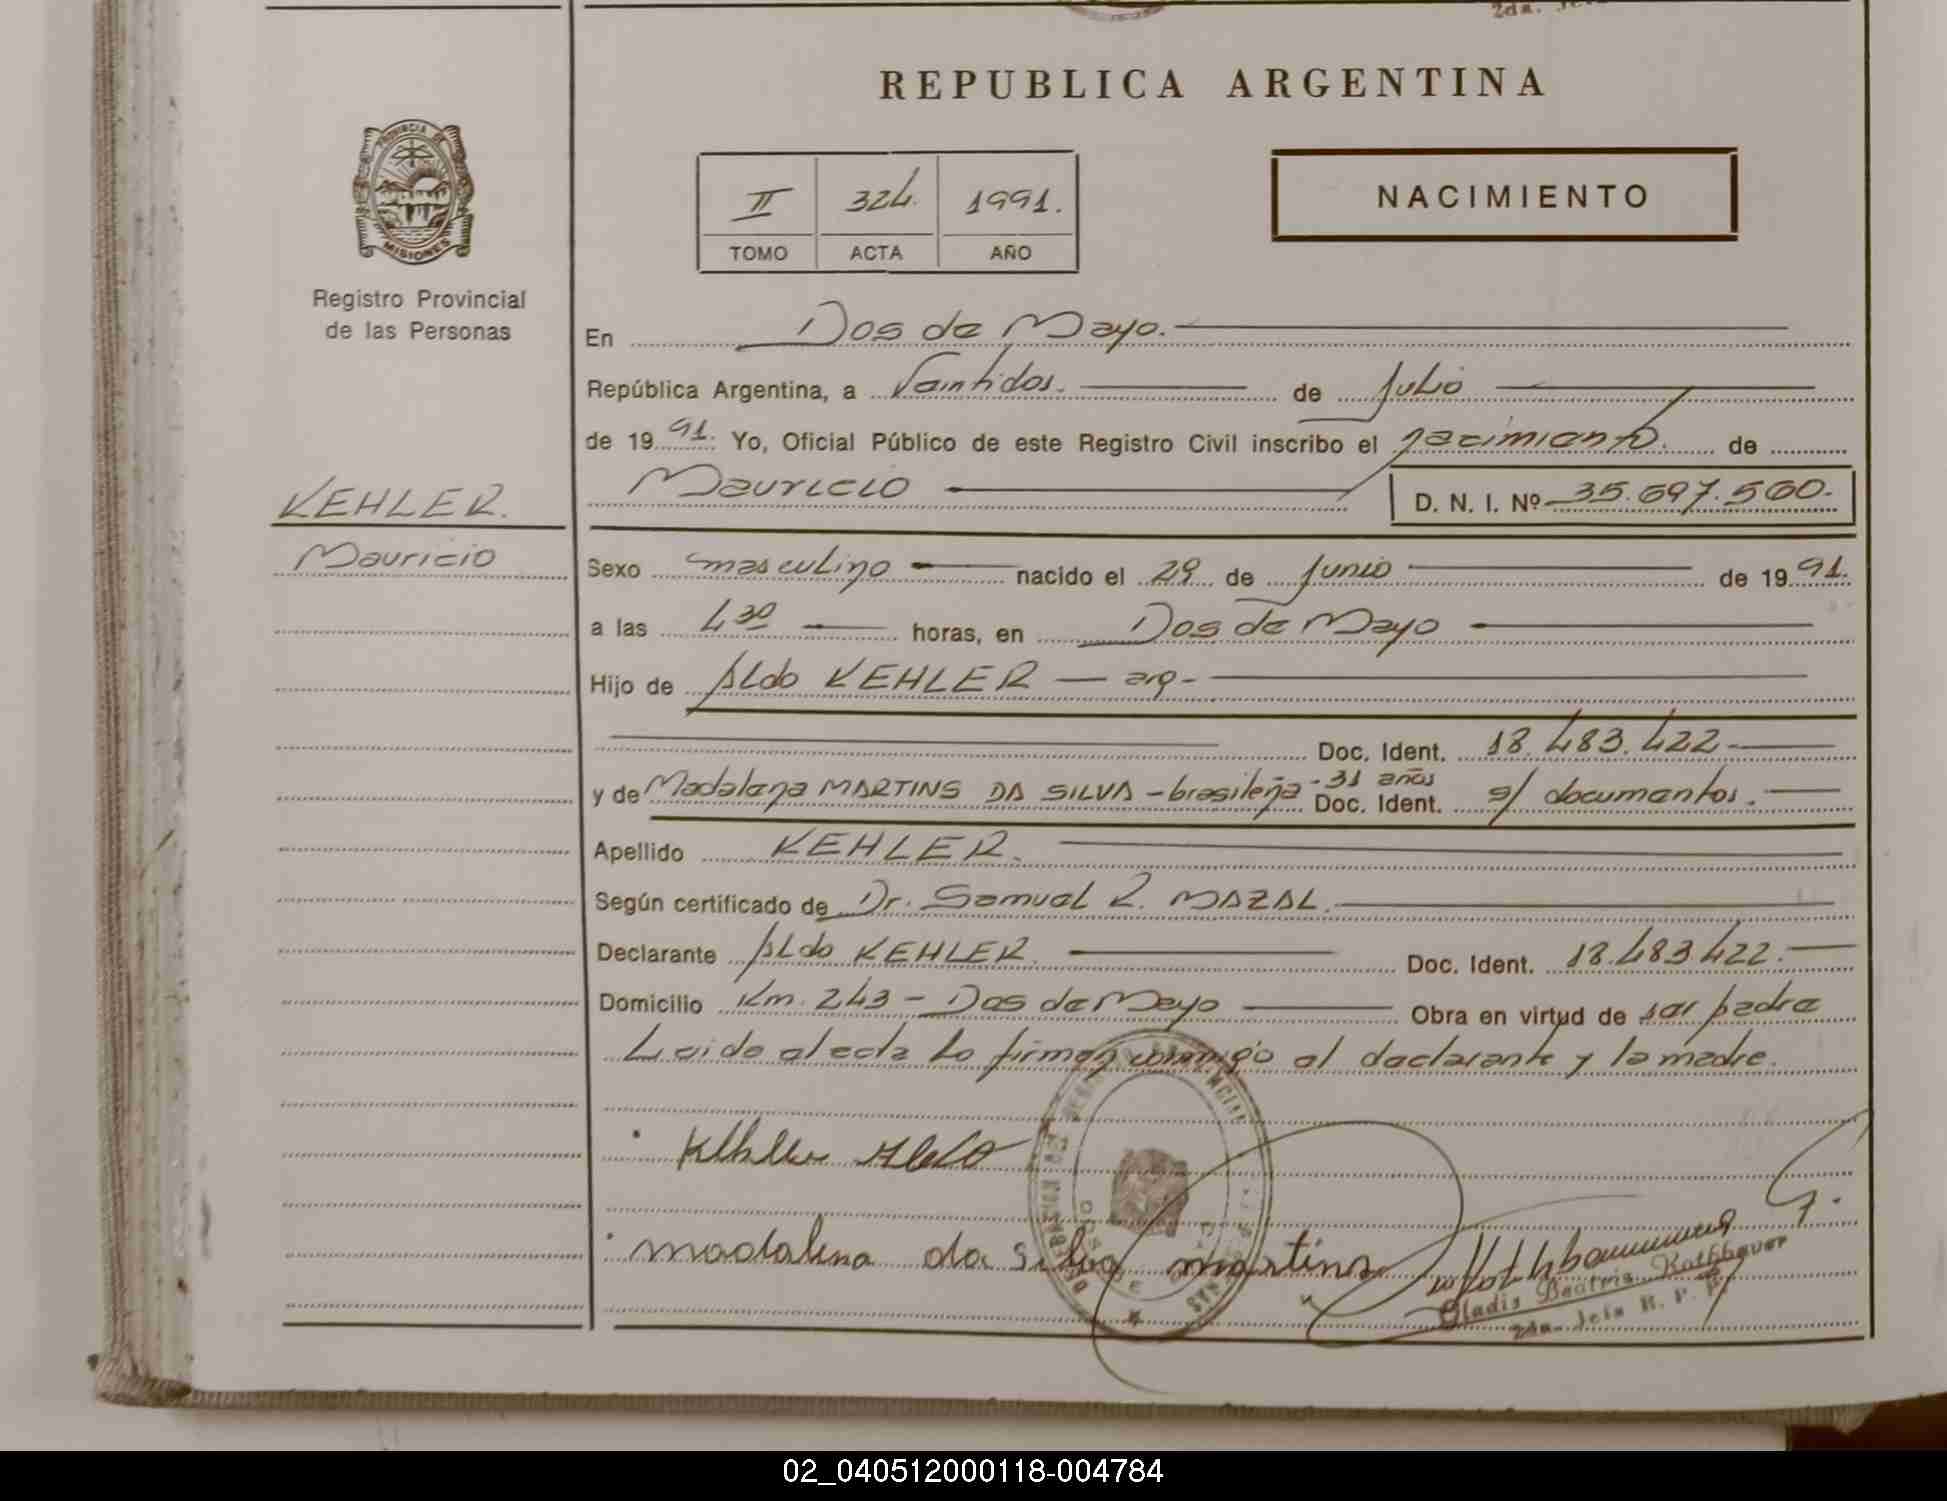 2da.
REPUBLICA ARGENTINA
PROVINCIA DE
MISIONES
II 324. 1991.
TOMO ACTA AÑO
NACIMIENTO
Registro Provincial
de las Personas
En Dos de Mayo.
República Argentina, a Veintidos. de Julio
de 1991. Yo, Oficial Público de este Registro Civil inscribo el nacimiento. de
Mauricio D. N. I. Nº 35.697.560.
KEHLER.
Mauricio
Sexo masculino nacido el 29 de Junio de 1991.
a las 4 30 horas, en Dos de Mayo
Hijo de Aldo KEHLER — arg-
Doc. Ident. 18.483.422
y de Madalena MARTINS DA SILVA - brasileña - 31 años Doc. Ident. s/ documentos.
Apellido KEHLER.
Según certificado de Dr. Samuel R. MAZAL.
Declarante Aldo KEHLER. Doc. Ident. 18.483.422.
Domicilio Km. 243 - Dos de Mayo Obra en virtud de ser padre
Leido el acta lo firman conmigo el declarante y la madre.
Kehler Aldo
madalena da silva martins
Gladis Beatriz Rothbauer
2da. Jefa R. P. P.
02_040512000118-004784